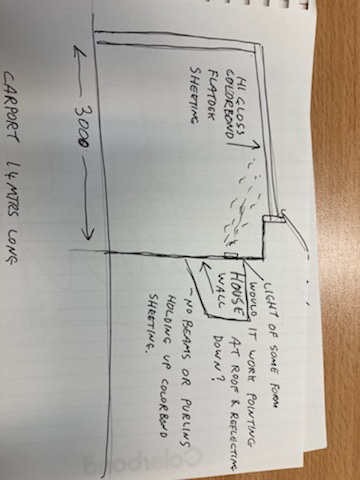 LIGHT OF SOME FORM
WOULD IT WORK POINTING
AT ROOF & REFLECTING
DOWN?
HOUSE
WALL
- NO BEAMS OR PURLINS
HOLDING UP COLORBOND
SHEETING.
HI GLOSS
COLORBOND
FLATDEK
SHEETING
3000
CARPORT 14 MTRS LONG